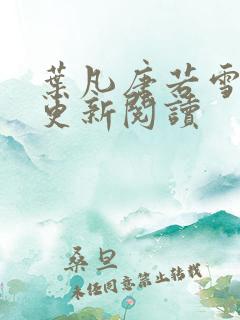 葉凡唐若雪
更新閱讀
桑旦
未經同意禁止轉載